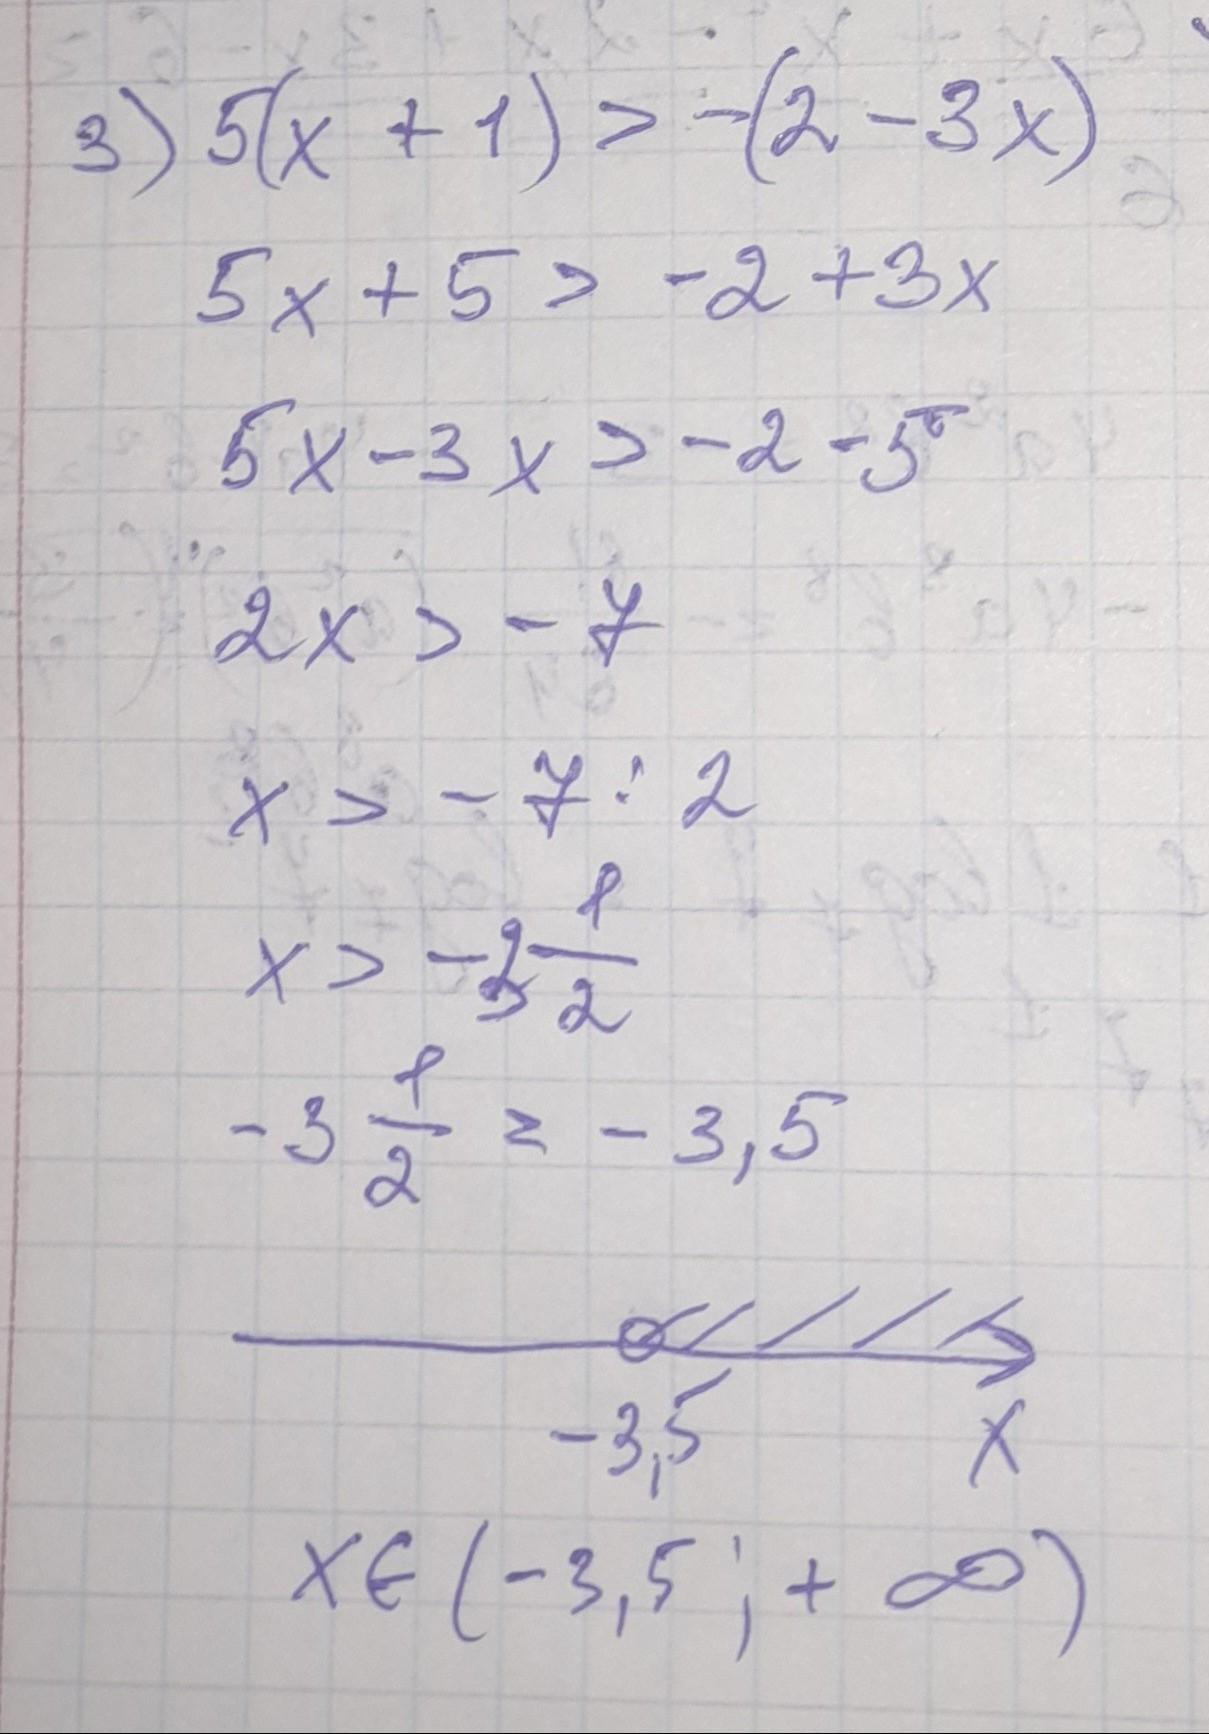 3) 5(x + 1) > -(2 - 3x)
5x + 5 > -2 + 3x
5x - 3x > -2 - 5
2x > -7
x > -7 : 2
x > -3 1/2
-3 1/2 = -3,5
-3,5 x
x∈(-3,5; +∞)